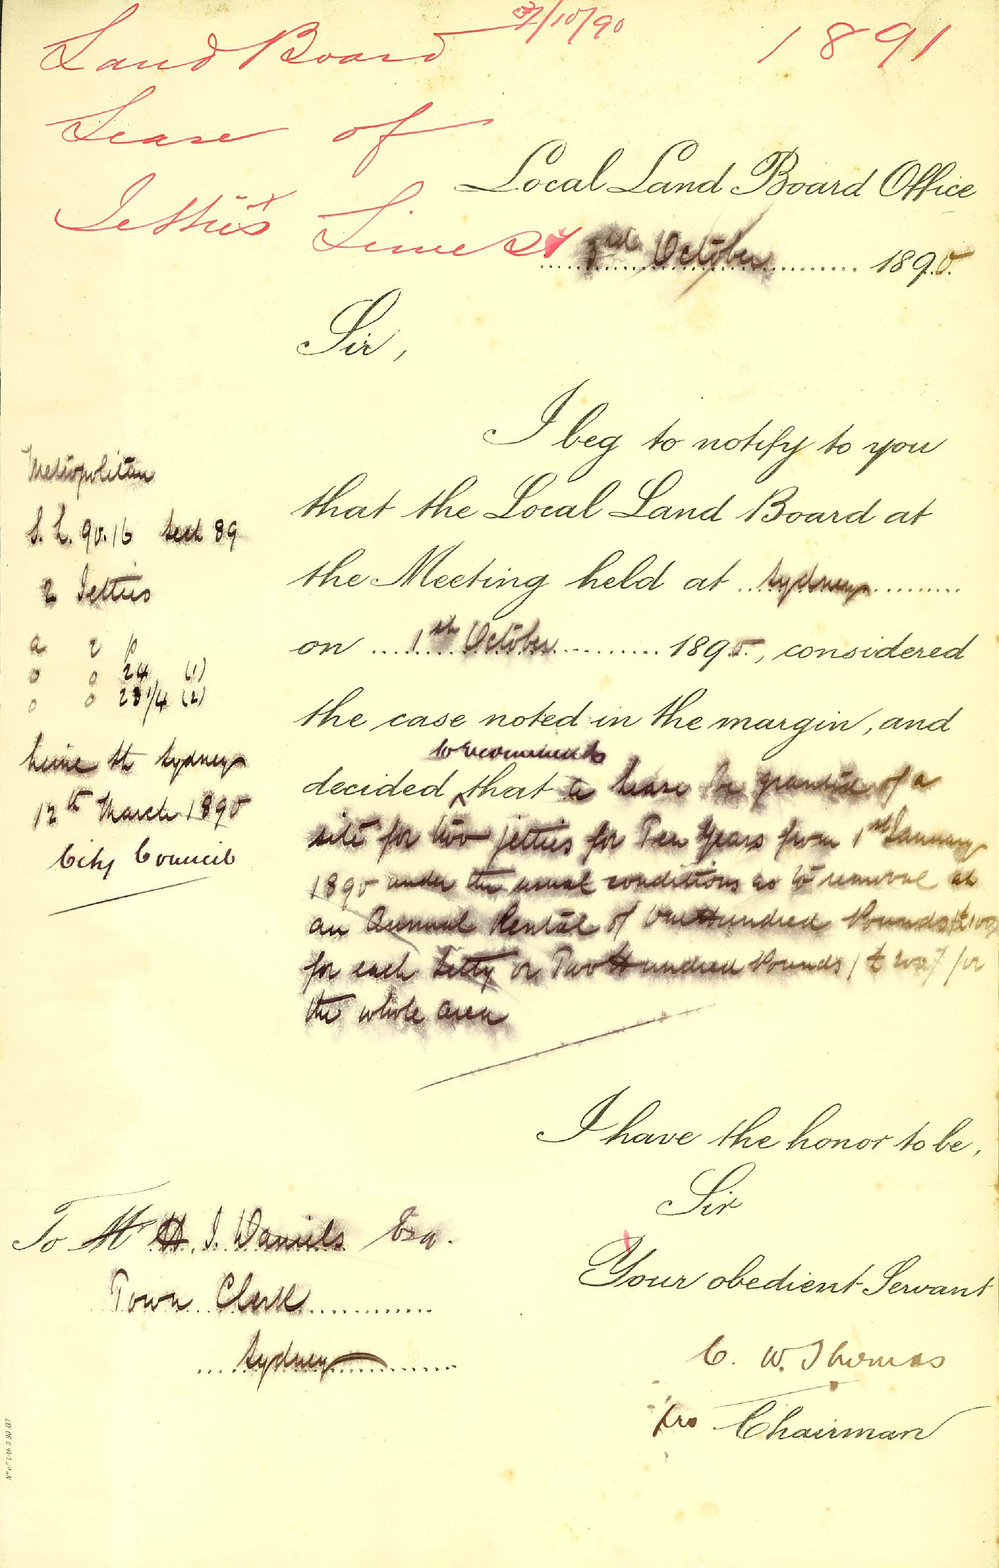 Land Board 3/10/90 1891
Lease of
Jetties Lime St
Local Land Board Office
3rd October 1890.
Sir,
I beg to notify to you
that the Local Land Board at
the Meeting held at Sydney
on 1st October 1890, considered
the case noted in the margin, and
to recommend
decided that a lease be granted of a
site for two jetties for Ten Years from 1st January
1890 under the usual conditions as to removal at
an Annual Rental of One Hundred Pounds (£100)
for each Jetty or Two Hundred Pounds (£200) for
the whole area
Metropolitan
S.L. 90.16 Sect 89
2 Jetties
a r p
0 0 24 (1)
0 0 23 1/4 (2)
Lime St Sydney
12th March 1890
City Council
I have the honor to be,
Sir
Your obedient Servant
C. W. Thomas
pro Chairman
To Mr H. J. Daniels Esq.
Town Clerk
Sydney